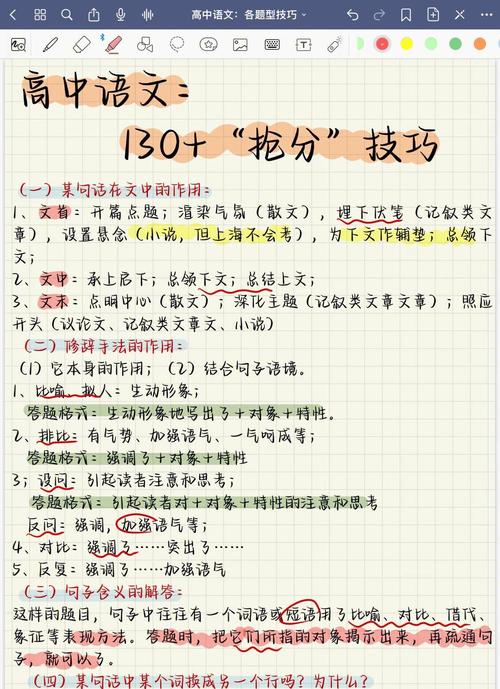 高中语文：各题型技巧
高中语文：
130+“抢分”技巧
（一）某句话在文中的作用：
1、文首：开篇点题；渲染气氛（散文），埋下伏笔（记叙类文
章），设置悬念（小说，但上海不会考），为下文作辅垫；总领下
文；
2、文中：承上启下；总领下文；总结上文；
3、文末：点明中心（散文）；深化主题（记叙类文章文章）；照应
开头（议论文、记叙类文章文、小说）
（二）修辞手法的作用：
（1）它本身的作用；（2）结合句子语境。
1、比喻、拟人：生动形象；
答题格式：生动形象地写出了+对象+特性。
2、排比：有气势、加强语气、一气呵成等；
答题格式：强调了+对象+特性
3；设问：引起读者注意和思考；
答题格式：引起读者对+对象+特性的注意和思考
反问：强调，加强语气等；
4、对比：强调了……突出了……
5、反复：强调了……加强语气
（三）句子含义的解答：
这样的题目，句子中往往有一个词语或短语用了比喻、对比、借代、
象征等表现方法。答题时，把它们所指的对象揭示出来，再疏通句
子，就可以了。
（四）某句话中某个词换成另一个行吗？为什么？